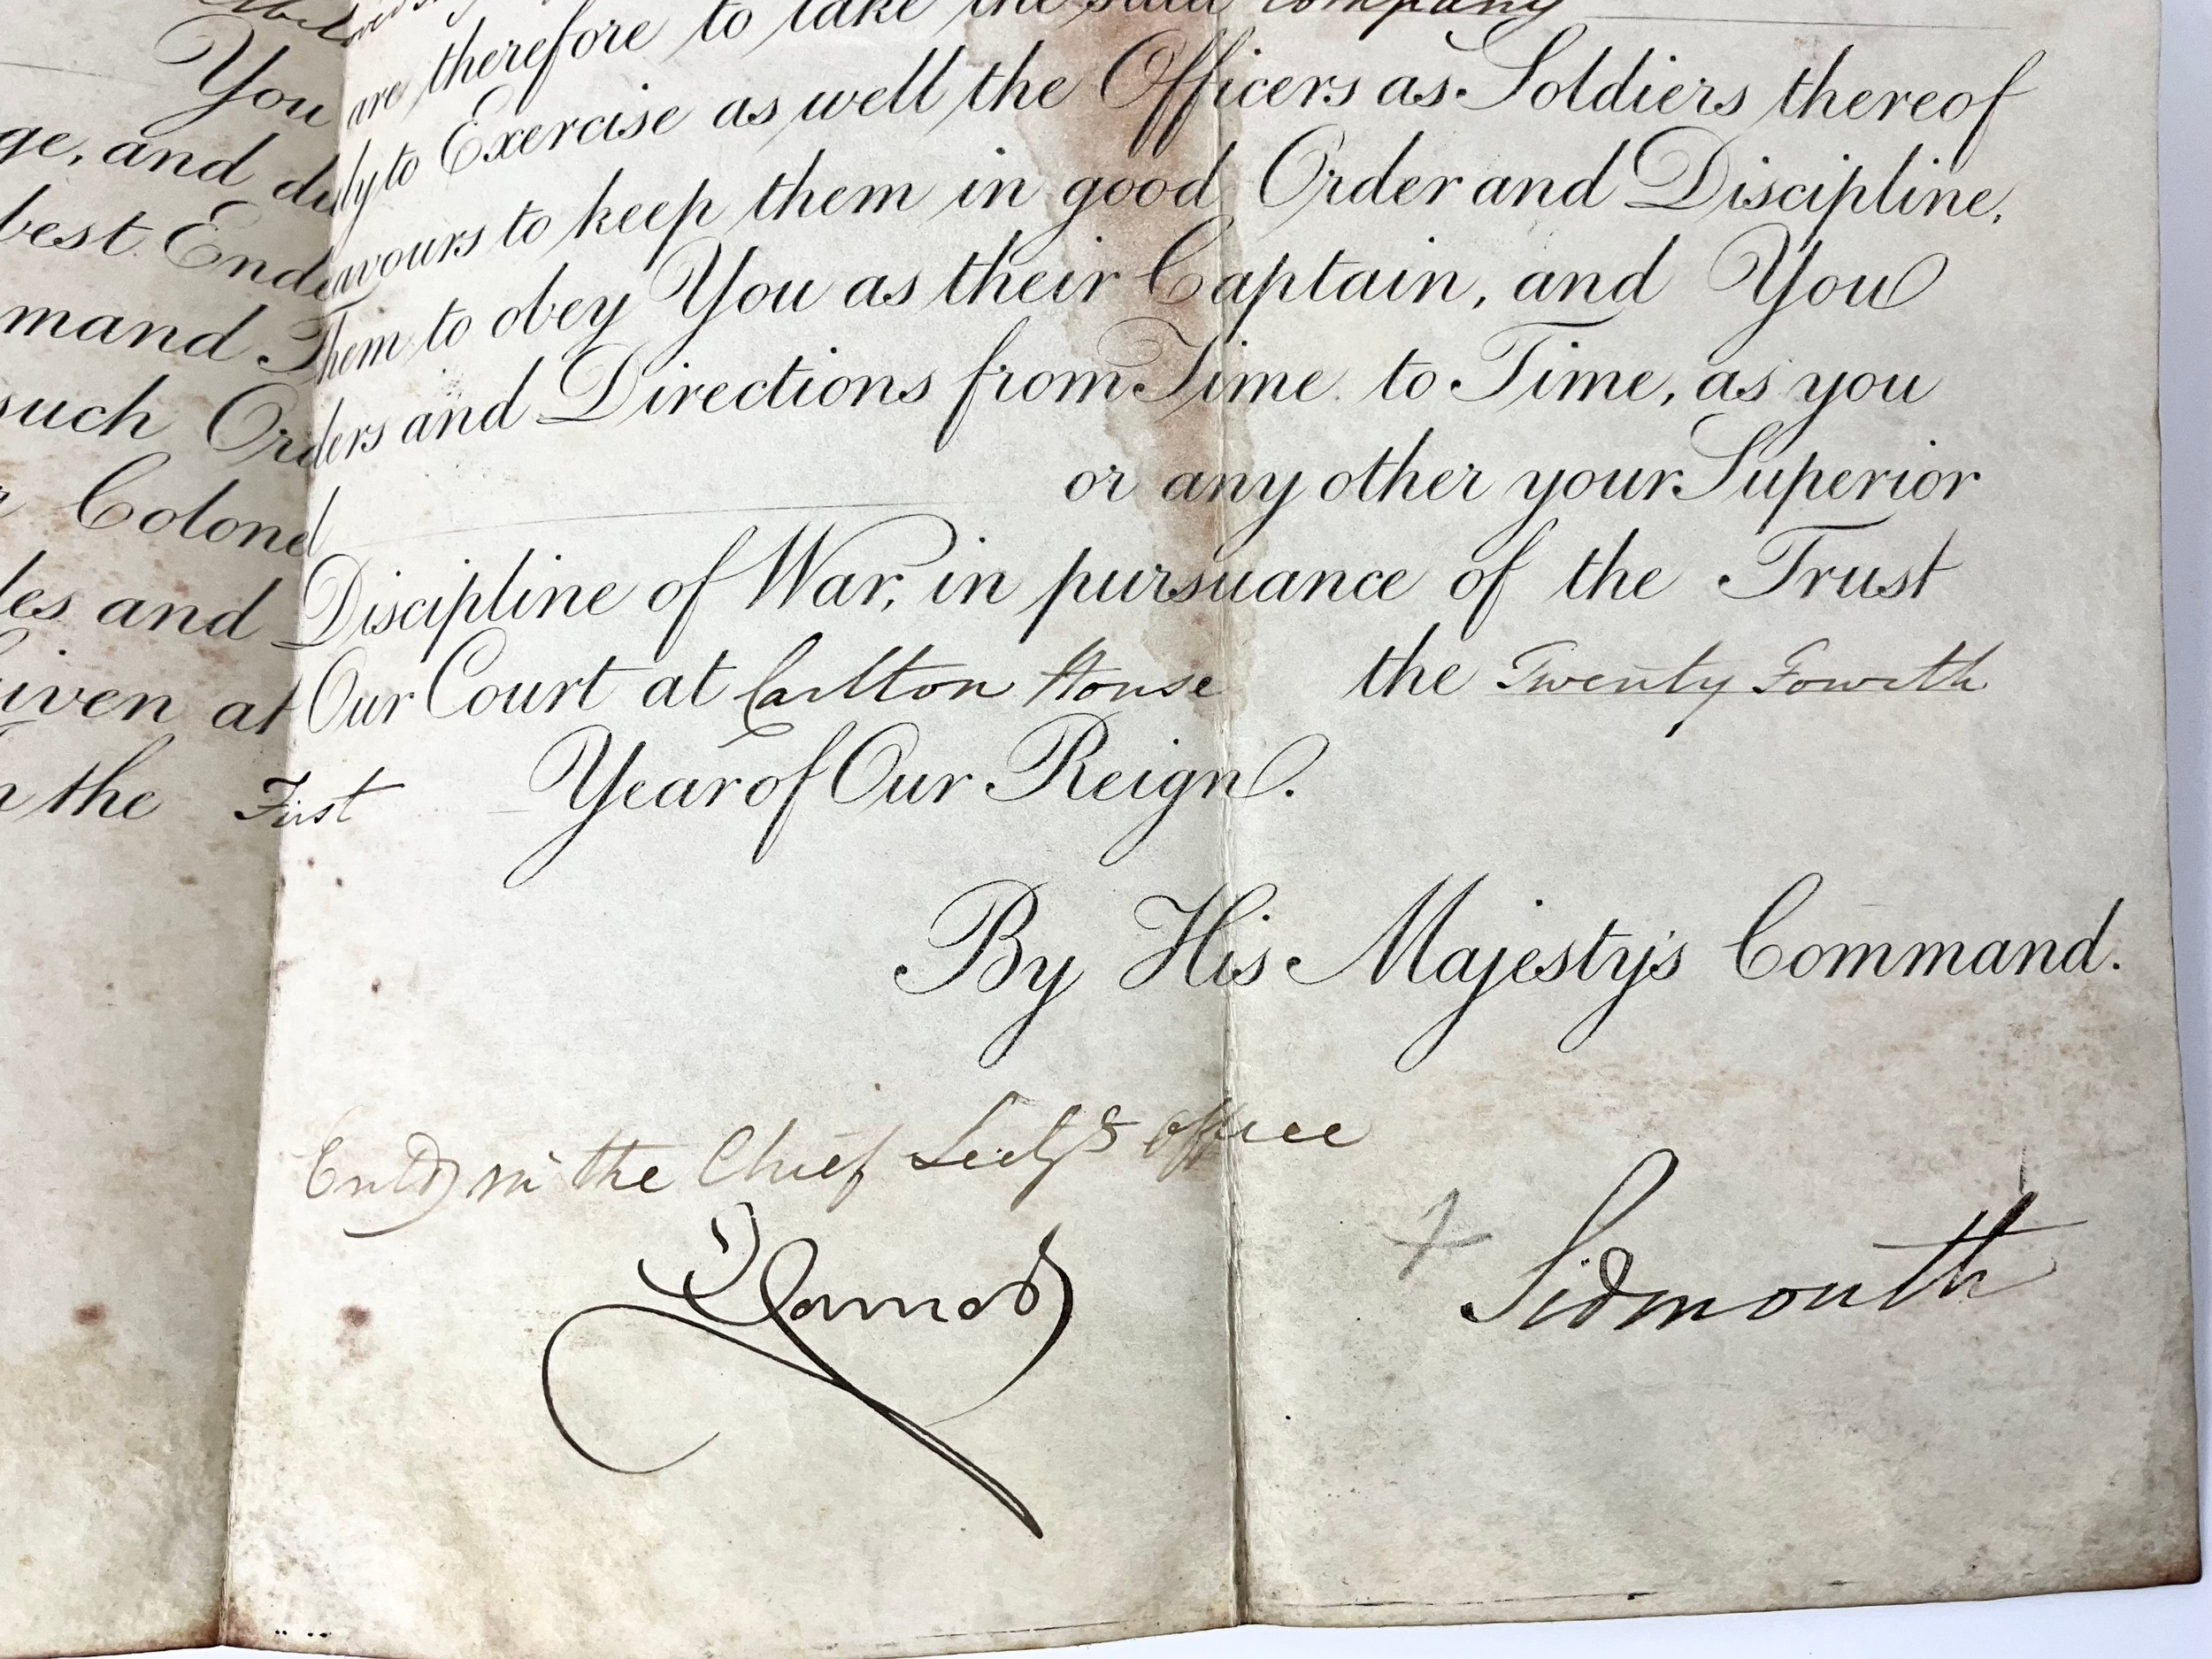 are therefore to take the said Company
You
ge, and duly to Exercise as well the Officers as Soldiers thereof
best Endeavours to keep them in good Order and Discipline,
mand Them to obey You as their Captain, and You
such Orders and Directions from Time to Time, as you
Colonel or any other your Superior
les and Discipline of War, in pursuance of the Trust
iven at Our Court at Carlton House the Twenty Fourth
the First Year of Our Reign.
By His Majesty's Command.
Entd in the Chief Secy's Office
Sidmouth